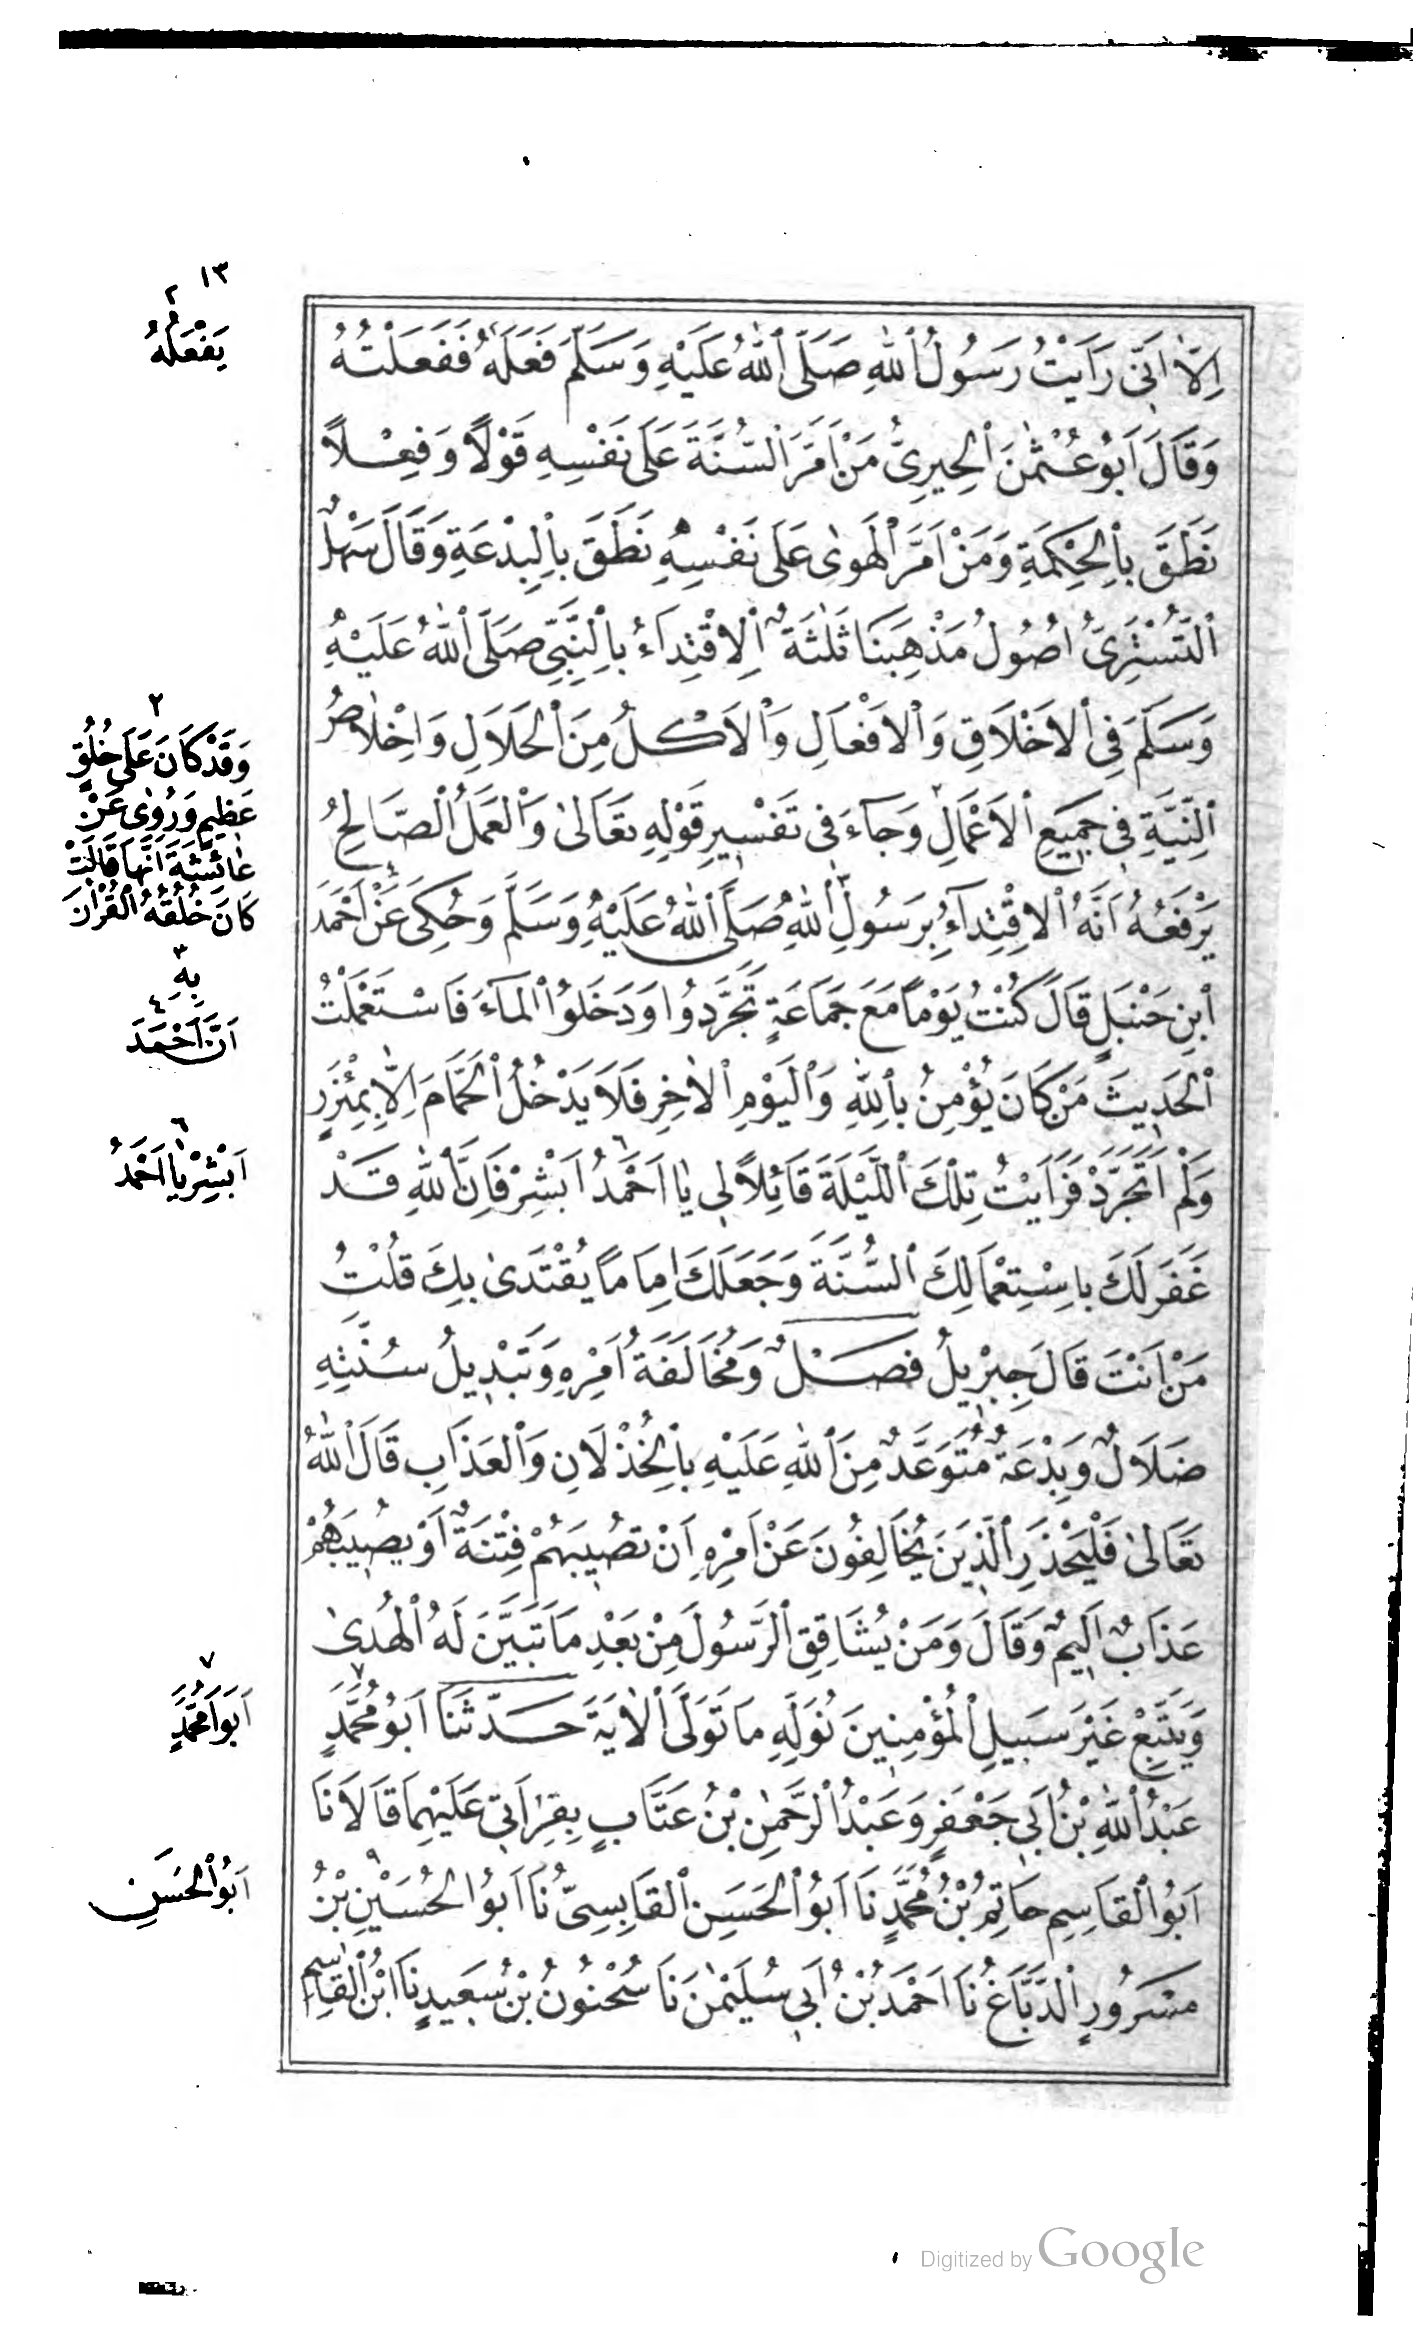 ١٣
٢
يَفْعَلُهُ
اِلَّا اَنّي رَاَيْتُ رَسُولَ اللهِ صَلَّى اللهُ عَلَيْهِ وَسَلَّمَ فَعَلَهُ فَفَعَلْتُهُ
وَقَالَ اَبُو عُثْمٰنَ الْحِيرِيُّ مَنْ اَمَّرَ السُّنَّةَ عَلَى نَفْسِهِ قَوْلًا وَفِعْلًا
نَطَقَ بِالْحِكْمَةِ وَمَنْ اَمَّرَ الْهَوٰى عَلَى نَفْسِهِ نَطَقَ بِالْبِدْعَةِ وَقَالَ سَهْلٌ
التُّسْتَرِيُّ اُصُولُ مَذْهَبِنَا ثَلٰثَةٌ اَلِاقْتِدَاءُ بِالنَّبِيِّ صَلَّى اللهُ عَلَيْهِ
وَسَلَّمَ فِي الْاَخْلَاقِ وَالْاَفْعَالِ وَالْاَكْلُ مِنَ الْحَلَالِ وَاِخْلَاصُ
النِّيَّةِ فِي جَمِيعِ الْاَعْمَالِ وَجَاءَ فِي تَفْسِيرِ قَوْلِهِ تَعَالٰى وَالْعَمَلُ الصَّالِحُ
يَرْفَعُهُ اَنَّهُ الْاِقْتِدَاءُ بِرَسُولِ اللهِ صَلَّى اللهُ عَلَيْهِ وَسَلَّمَ وَحُكِيَ عَنْ اَحْمَدَ
ابْنِ حَنْبَلٍ قَالَ كُنْتُ يَوْمًا مَعَ جَمَاعَةٍ تَجَرَّدُوا وَدَخَلُوا الْمَاءَ فَاسْتَعْمَلْتُ
الْحَدِيثَ مَنْ كَانَ يُؤْمِنُ بِاللهِ وَالْيَوْمِ الْاٰخِرِ فَلَا يَدْخُلُ الْحَمَّامَ اِلَّا بِمِئْزَرٍ
وَلَمْ اَتَجَرَّدْ فَرَاَيْتُ تِلْكَ اللَّيْلَةَ قَائِلًا لِي يَا اَحْمَدُ اَبْشِرْ فَاِنَّ اللهَ قَدْ
غَفَرَ لَكَ بِاسْتِعْمَالِكَ السُّنَّةَ وَجَعَلَكَ اِمَامًا يُقْتَدٰى بِكَ قُلْتُ
مَنْ اَنْتَ قَالَ جِبْرِيلُ فَصْلٌ وَمُخَالَفَةُ اَمْرِهِ وَتَبْدِيلُ سُنَّتِهِ
ضَلَالٌ وَبِدْعَةٌ مُتَوَعَّدٌ مِنَ اللهِ عَلَيْهِ بِالْخِذْلَانِ وَالْعَذَابِ قَالَ اللهُ
تَعَالٰى فَلْيَحْذَرِ الَّذِينَ يُخَالِفُونَ عَنْ اَمْرِهِ اَنْ تُصِيبَهُمْ فِتْنَةٌ اَوْ يُصِيبَهُمْ
عَذَابٌ اَلِيمٌ وَقَالَ وَمَنْ يُشَاقِقِ الرَّسُولَ مِنْ بَعْدِ مَا تَبَيَّنَ لَهُ الْهُدٰى
وَيَتَّبِعْ غَيْرَ سَبِيلِ الْمُؤْمِنِينَ نُوَلِّهِ مَا تَوَلَّى الْاٰيَةَ حَدَّثَنَا اَبُو مُحَمَّدٍ
عَبْدُ اللهِ بْنُ اَبِي جَعْفَرٍ وَعَبْدُ الرَّحْمٰنِ بْنُ عَتَّابٍ بِقِرَاءَتِي عَلَيْهِمَا قَالَا نَا
اَبُو الْقَاسِمِ حَاتِمُ بْنُ مُحَمَّدٍ نَا اَبُو الْحَسَنِ الْقَابِسِيُّ نَا اَبُو الْحُسَيْنِ بْنُ
مَسْرُورٍ الدَّبَّاغُ نَا اَحْمَدُ بْنُ اَبِي سُلَيْمٰنَ نَا سُحْنُونُ بْنُ سَعِيدٍ نَا ابْنُ الْقَاسِمِ
٢
وَقَدْ كَانَ عَلَى خُلُقٍ
عَظِيمٍ وَرُوِىَ عَنْ
عَائِشَةَ اَنَّهَا قَالَتْ
كَانَ خُلُقُهُ الْقُرْاٰنَ
٣
بِهِ
٤
اَنَّ اَحْمَدَ
٦
اَبْشِرْ يَا اَحْمَدُ
٧
اَبُو مُحَمَّدٍ
اَبُو الْحَسَنِ
Digitized by Google